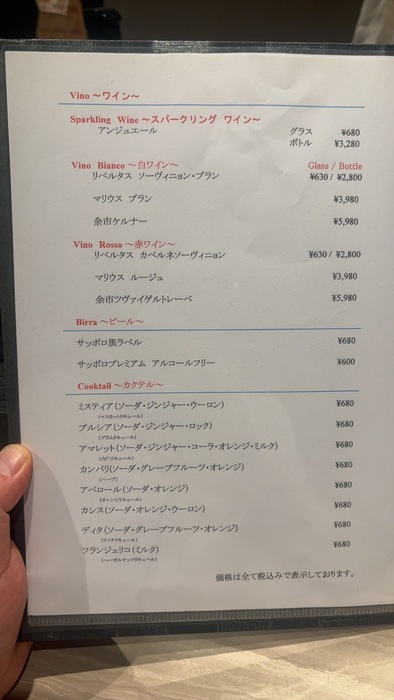 Vino ～ワイン～
Sparkling Wine～スパークリング ワイン～
アンジュエール グラス ¥680
ボトル ¥3,280
Vino Bianco ～白ワイン～ Glass / Bottle
リベルタス ソーヴィニョン・ブラン ¥630 / ¥2,800
マリウス ブラン ¥3,980
余市ケルナー ¥5,980
Vino Rosso ～赤ワイン～
リベルタス カベルネソーヴィニョン ¥630 / ¥2,800
マリウス ルージュ ¥3,980
余市ツヴァイゲルトレーベ ¥5,980
Birra ～ビール～
サッポロ黒ラベル ¥680
サッポロプレミアム アルコールフリー ¥600
Cooktail ～カクテル～
ミスティア(ソーダ・ジンジャー・ウーロン) ¥680
(マスカットリキュール)
プルシア(ソーダ・ジンジャー・ロック) ¥680
(プラムリキュール)
アマレット(ソーダ・ジンジャー・コーラ・オレンジ・ミルク) ¥680
カンパリ(ソーダ・グレープフルーツ・オレンジ) ¥680
(ハーブ)
アペロール(ソーダ・オレンジ) ¥680
(オレンジリキュール)
カシス(ソーダ・オレンジ・ウーロン) ¥680
ディタ(ソーダ・グレープフルーツ・オレンジ) ¥680
(ライチリキュール)
フランジェリコ(ミルク) ¥680
(ヘーゼルナッツリキュール)
価格は全て税込みで表示しております。